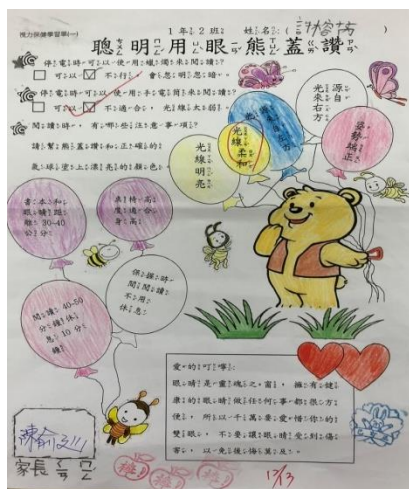 視力保健學習單(一)
1年2班 姓名:(
聰明用眼熊蓋讚
停電時可以使用蠟燭來閱讀?
□可以 ☑不行,會忽明忽暗。
停電時可以使用手電筒來閱讀?
□可以 ☑不適合,光線太弱。
閱讀時,有哪些注意事項?
請幫熊蓋讚和正確的
氣球塗上漂亮的顏色。
光線明亮
光線柔和
光來右方
源自
姿勢端正
書本和
眼睛距
離 30-40
公分
桌椅高
度適合
身高
閱讀 40-50
分鐘休
息 10 分
鐘
保持長時
間閱讀
不用
休息
愛的叮嚀:
眼睛是靈魂之窗,擁有健
康的眼睛做任何事都很方
便,所以千萬要愛惜你的
雙眼,不要讓眼睛受到傷
害,以免後悔莫及。
家長
12/13